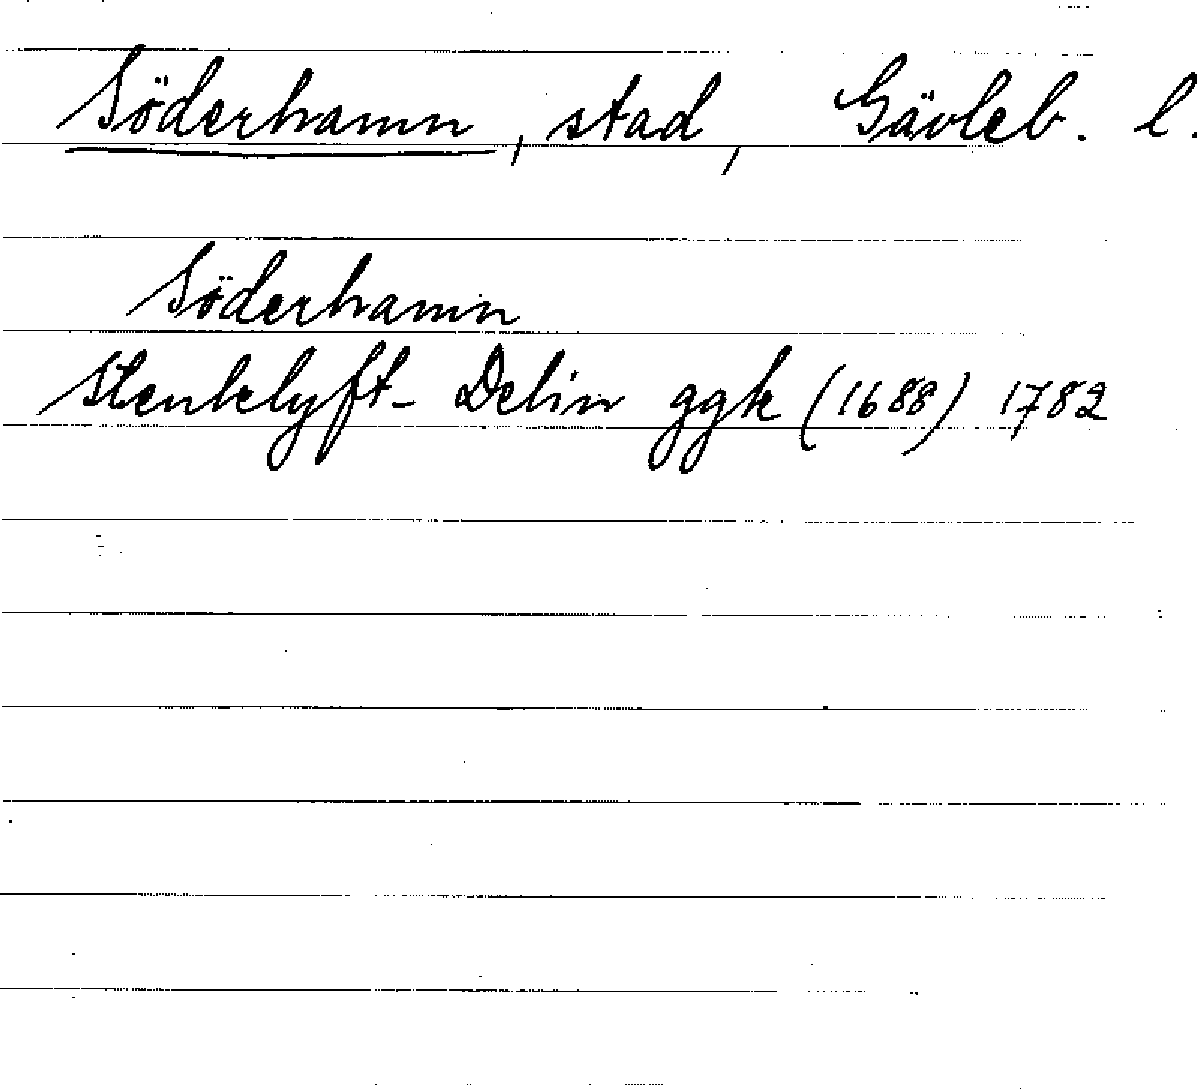 Söderhamn, stad, Gävleb. l.
Söderhamn
Stenklyft- Delin ggk (1688) 1782